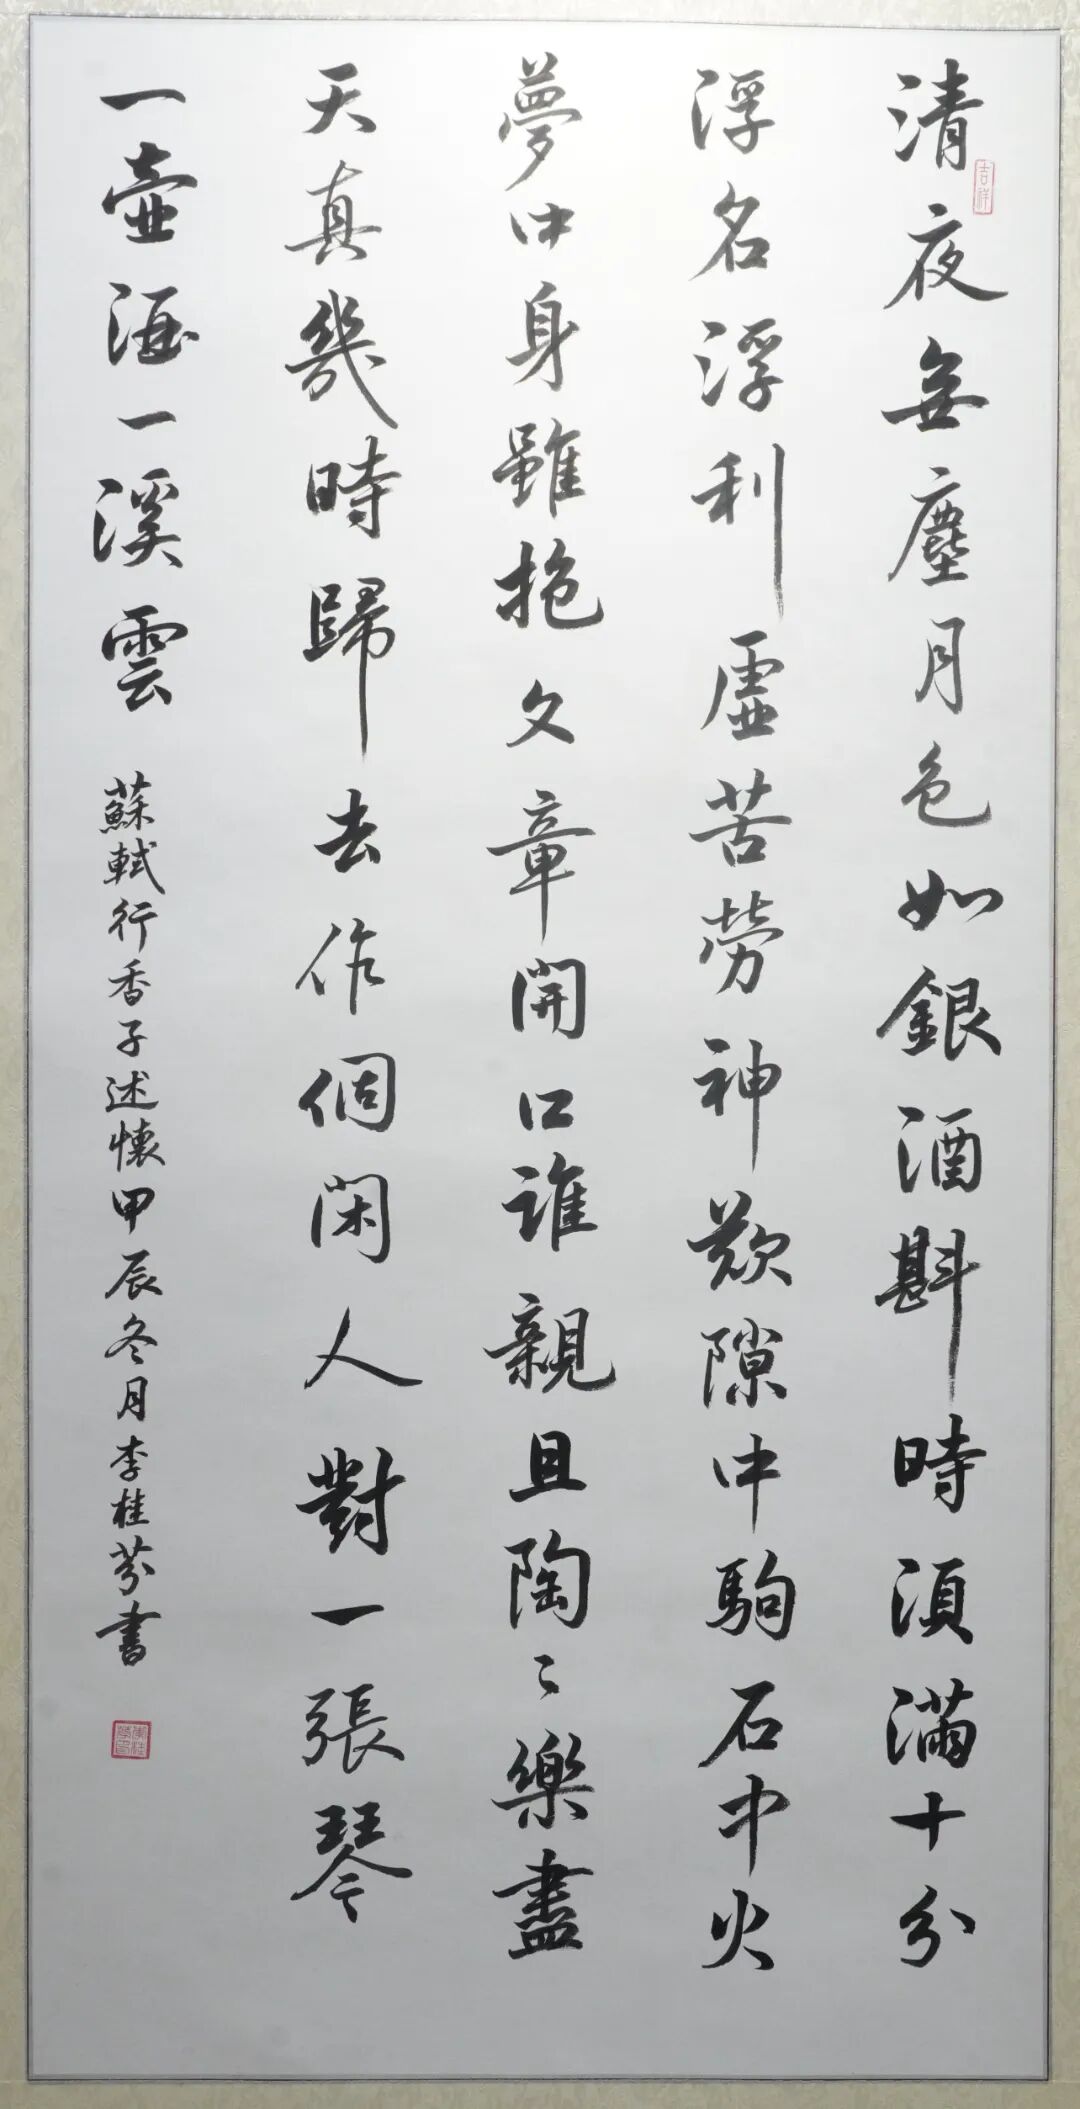 清夜無塵月色如銀酒斟時須滿十分
浮名浮利虛苦勞神歎隙中駒石中火
夢中身雖抱文章開口誰親且陶〻樂盡
天真幾時歸去作個閑人對一張琴
一壺酒一溪雲
蘇軾行香子述懷甲辰冬月李桂芬書
吉祥